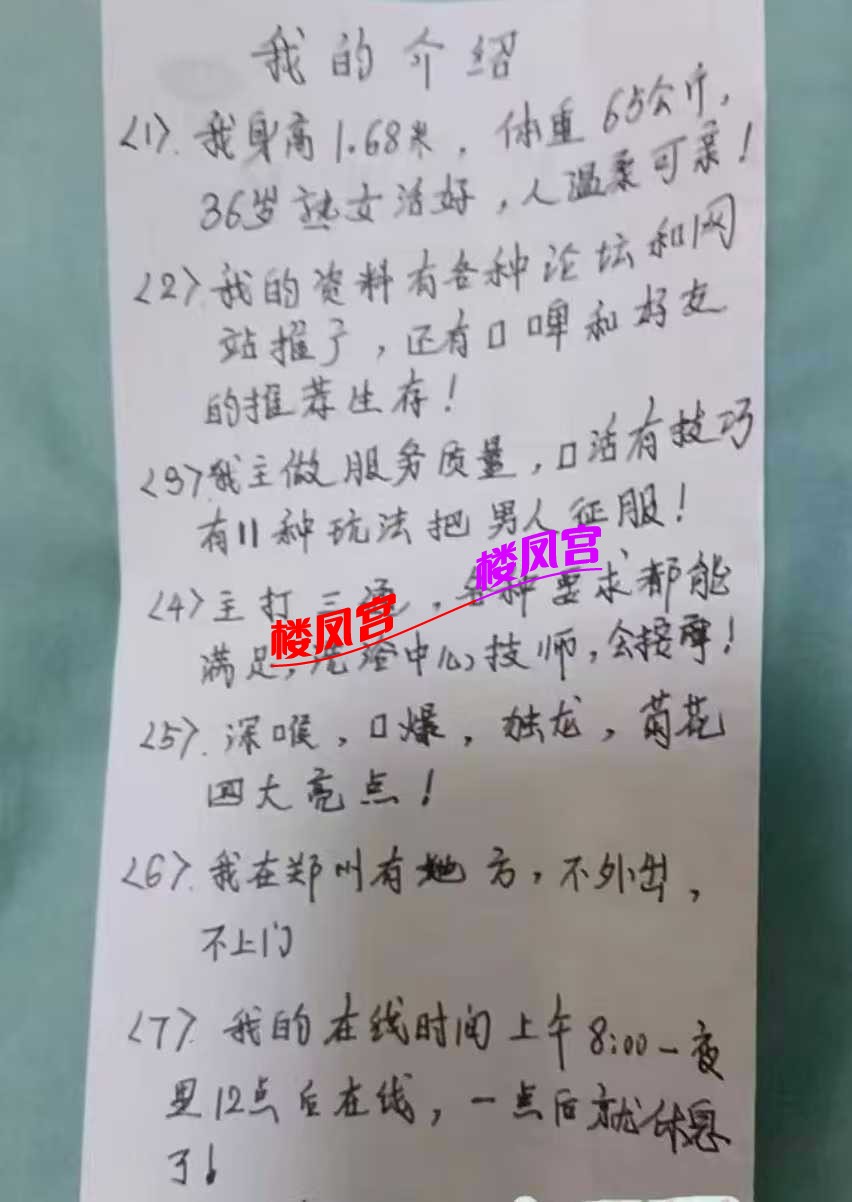 我的介绍
<1>. 我身高1.68米，体重65公斤，
36岁熟女活好，人温柔可亲！
<2>我的资料有各种论坛和网
站推了，还有口啤和好友
的推荐生存！
<3>我主做服务质量，口活有技巧
有11种玩法把男人征服！
楼凤宫
<4>主打三通，各种要求都能
楼凤宫
满足，洗浴中心技师，会按摩！
<5>. 深喉，口爆，独龙，菊花
四大亮点！
<6>. 我在郑州有地方，不外出，
不上门
<7>. 我的在线时间上午8:00一夜
里12点后在线，一点后就休息
了！